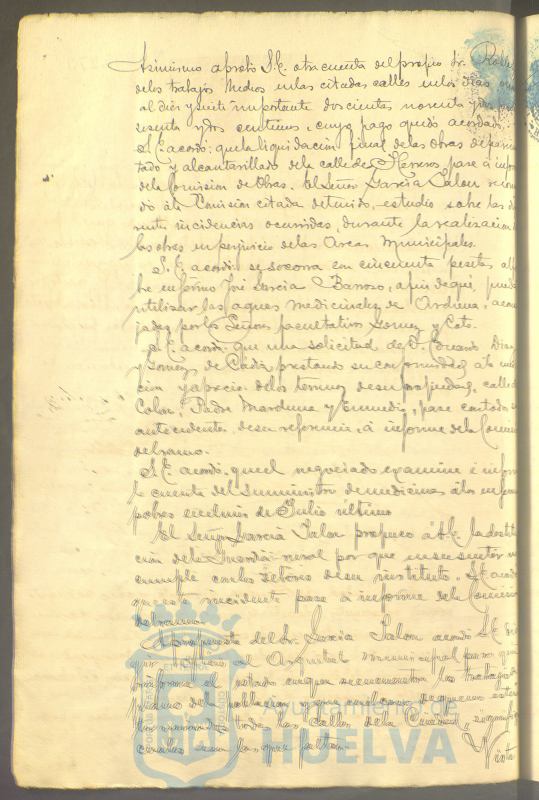 Asimismo aprobó S.E. otra cuenta del propio Sr. Robles
de los trabajos hechos en las citadas calles en los días
al diez y siete importante doscientas noventa y
sesenta y dos centimos, cuyo pago quedó acordado.
S.E. acordó: que la liquidación final de las obras de
tado y alcantarillado de la calle de Herreros, pase a
de la Comision de Obras. El Señor García Jalon
dó á la Comision citada detenido estudio sobre las
incidencias ocurridas, durante la realizacion
las obras en perjuicio de las Arcas Municipales.
S.E. acordó se socorra con cincuenta pesetas al
enfermo José Garcia Barroso, a fin de que pueda
utilizar las aguas medicinales de
por los Señores facultativos Gomez y Coto.
S.E. acordó que una solicitud de D. Eduardo Diaz
y Gomez, de Cádiz, prestando su conformidad á la
cion y aprecio de los terrenos de su propiedad, calles
Colon, Padre Marchena y Enmedio, pase con todos
antecedentes de su referencia, á informe de la Comision
del ramo.
S.E. acordó que el negociado examine é informe
la cuenta del suministro de medicinas á los enfermos
pobres en el mes de Julio último
El Señor Garcia Jalon propuso á S.E. la destitu
cion de la Guardia rural por que en su sentir no
cumple con los deberes de su instituto. S.E. acordó
que este incidente pase á informe de la Comision
del ramo.
A propuesta del Sr. Garcia Jalon acordó S.E.
al Arquitecto municipal para que
informe el estado en que se encuentran los trabajos
plano de la poblacion y
todas las calles de la Ciudad
cuales sean las que faltan.
Vista
Ayuntamiento de
HUELVA